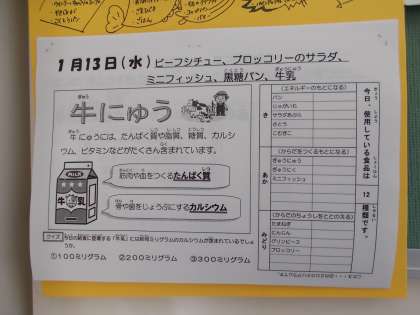 1月13日(水) ビーフシチュー、ブロッコリーのサラダ、
ミニフィッシュ、黒糖パン、牛乳
こくとう
ぎゅうにゅう
ぎゅう
牛にゅう
牛にゅうには、たんぱく質や脂質、糖質、カルシ
ウム、ビタミンなどがたくさん含まれています。
MILK
牛乳
筋肉や血をつくるたんぱく質
骨や歯をじょうぶにするカルシウム
クイズ 今日の給食に登場する「牛乳」には何ミリグラムのカルシウムが含まれているでしょ
うか。
①100ミリグラム ②200ミリグラム ③300ミリグラム
今日、使用している食品は
12
種類です。
き
(エネルギーのもとになる)
パン
じゃがいも
サラダあぶら
さとう
こむぎこ
あか
(からだをつくるもとになる)
ぎゅうにゅう
ぎゅうにく
ミニフィッシュ
みどり
(からだのちょうしをととのえる)
たまねぎ
にんじん
グリンピース
ブロッコリー